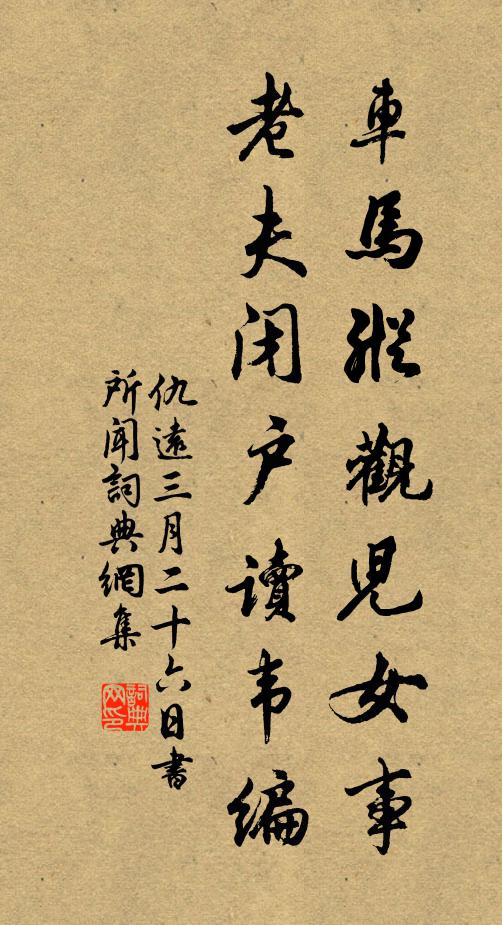 車馬縱觀兒女事
老夫闭户讀韦編
仇遠三月二十六日書
所聞詞典網集
詞典网印